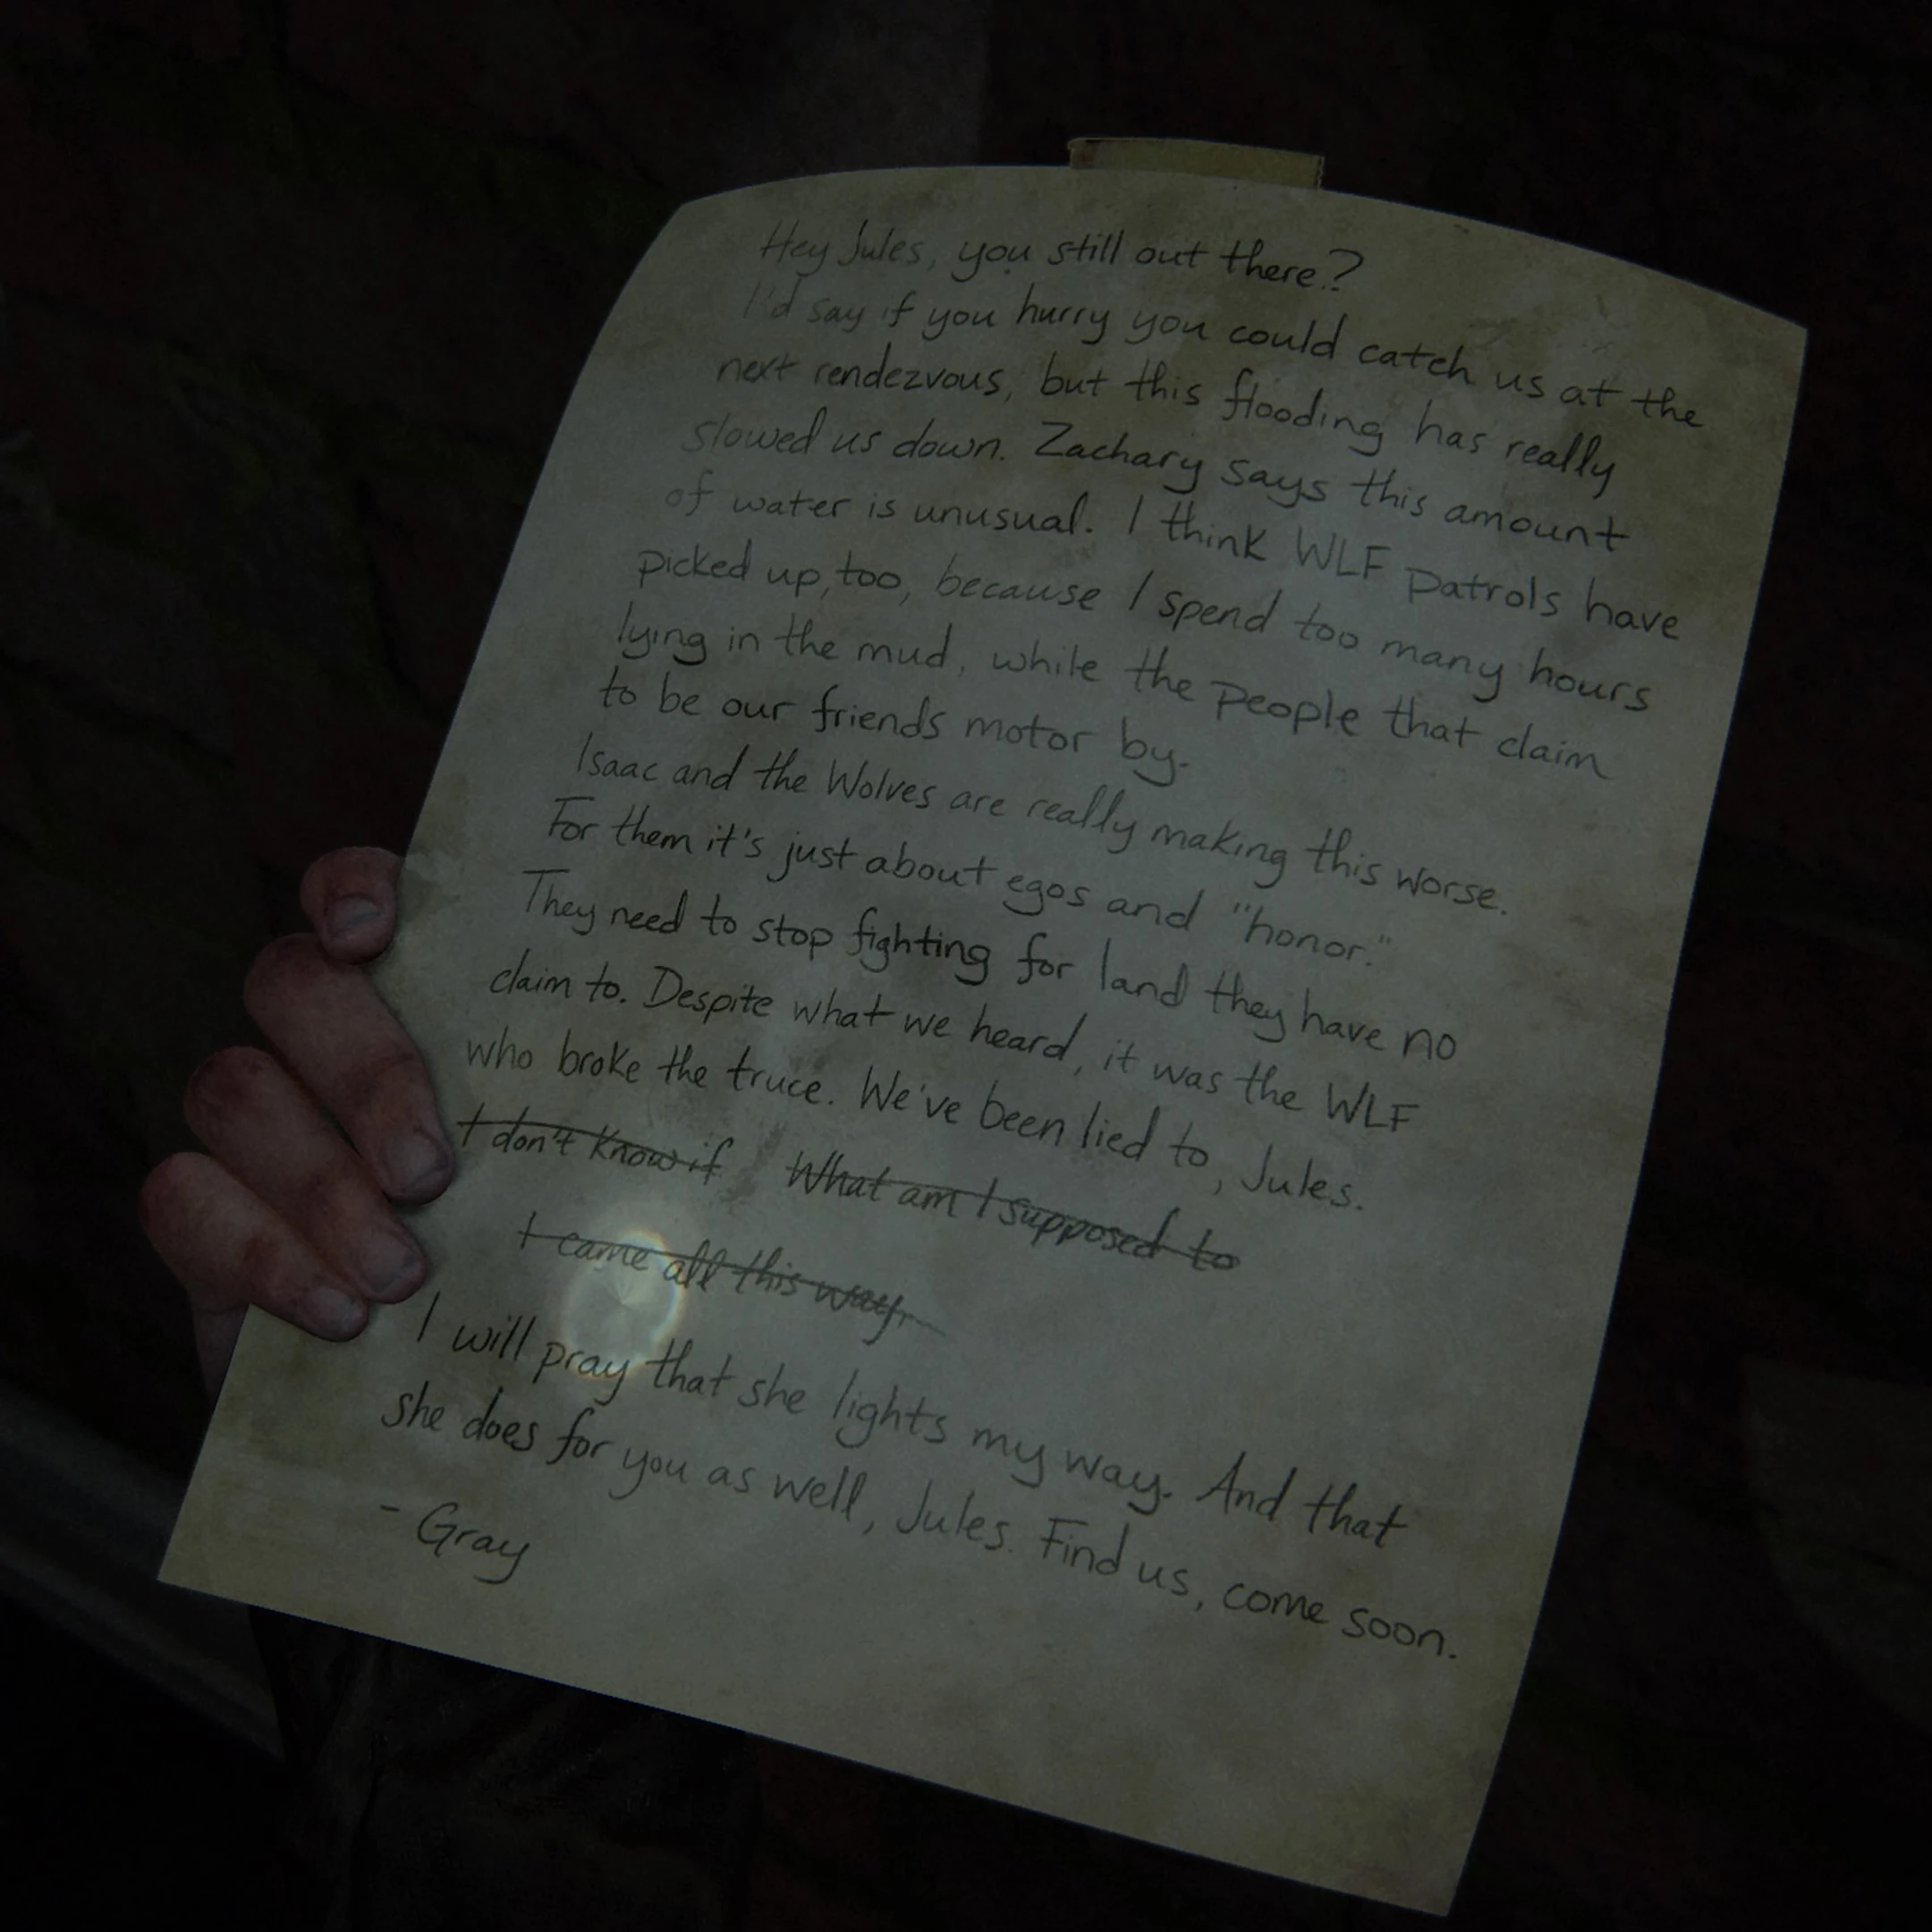 Hey Jules, you still out there?
I'd say if you hurry you could catch us at the
next rendezvous, but this flooding has really
slowed us down. Zachary says this amount
of water is unusual. I think WLF patrols have
picked up, too, because I spend too many hours
lying in the mud, while the people that claim
to be our friends motor by.
Isaac and the Wolves are really making this worse.
For them it's just about egos and "honor."
They need to stop fighting for land they have no
claim to. Despite what we heard, it was the WLF
who broke the truce. We've been lied to, Jules.
I don't know if What am I supposed to
I came all this way.
I will pray that she lights my way. And that
she does for you as well, Jules. Find us, come soon.
- Gray